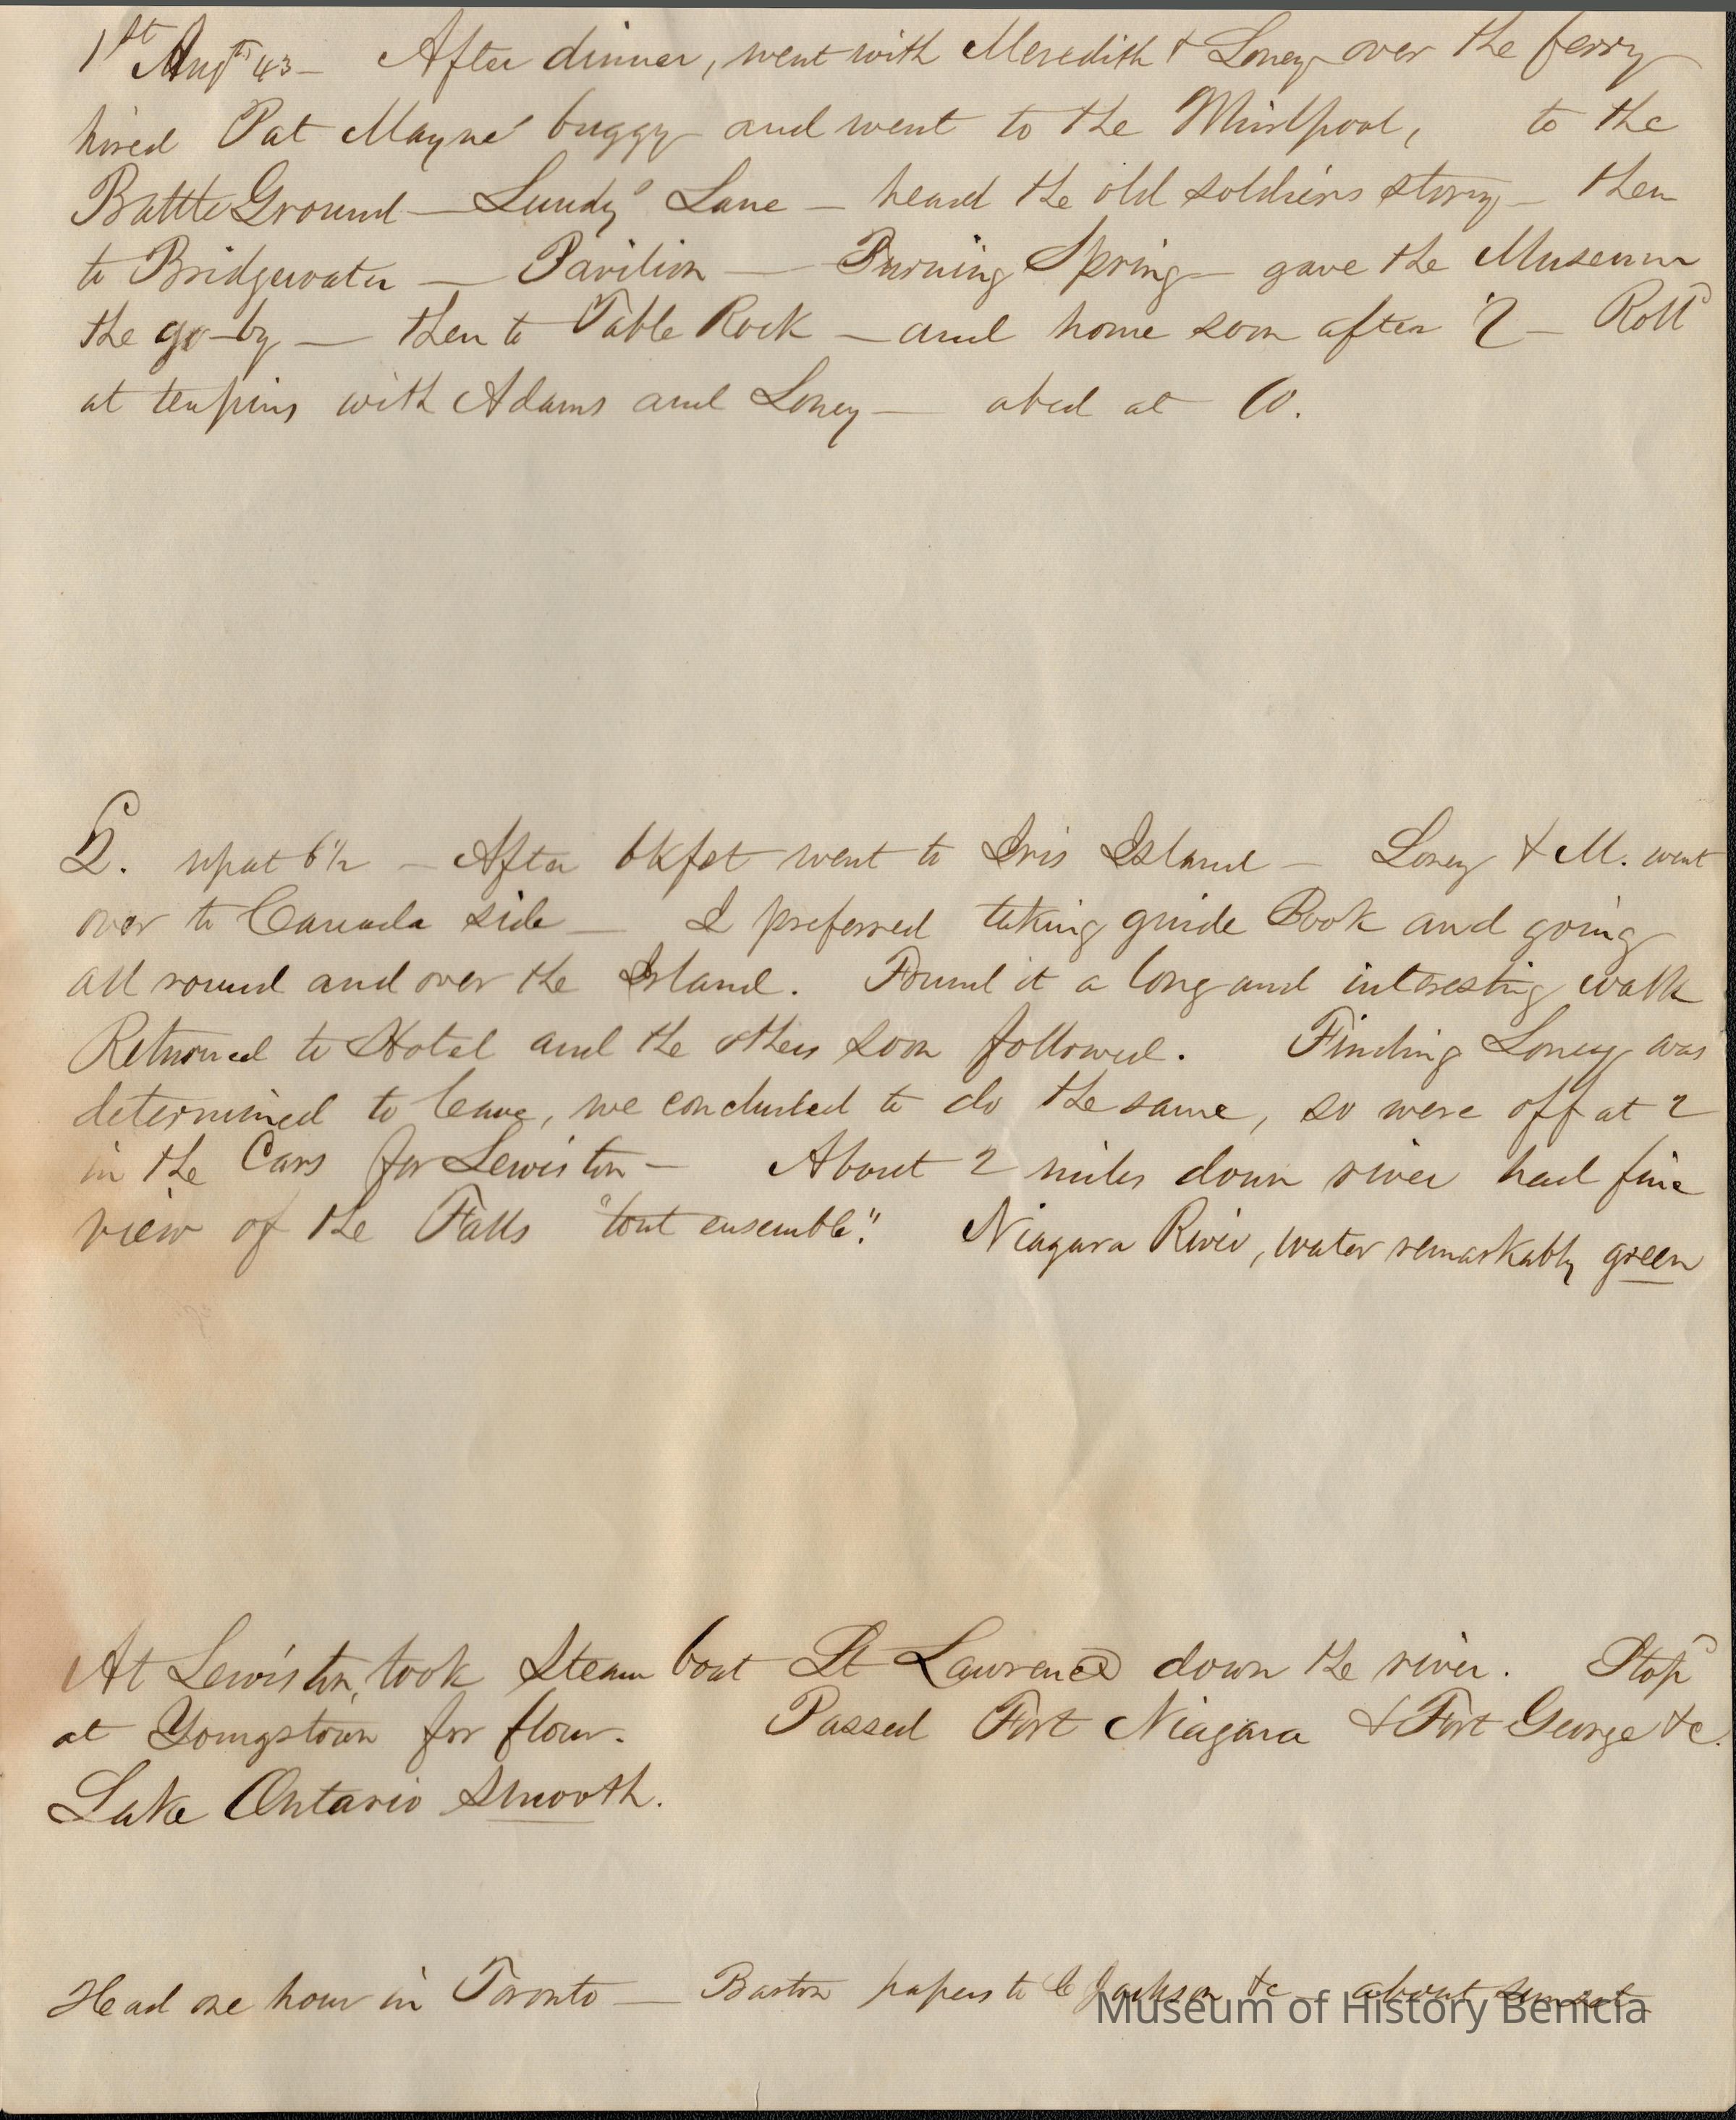 1st Augt 43 — After dinner, went with Meredith & Loney over the ferry
hired Pat Mayne' buggy and went to the Whirlpool, to the
Battle Ground — Lundy' Lane — heard the old soldiers story — then
to Bridgewater — Pavilion — Burning Spring — gave the Museum
the go-by — then to Table Rock — and home soon after 7 — Roll'd
at tenpins with Adams and Loney — abed at 10.
2. up at 6½ — After bkfst went to Iris Island — Loney & M. went
over to Canada side — I preferred taking guide Book and going
all round and over the Island. Found it a long and interesting walk
Returned to Hotel and the others soon followed. Finding Loney was
determined to leave, we concluded to do the same, so were off at 2
in the Cars for Lewiston — About 2 miles down river had fine
view of the Falls "tout ensemble". Niagara River, water remarkably green
At Lewiston, took Steam boat St Lawrence down the river. Stop'd
at Youngstown for flour. Passed Fort Niagara & Fort George &c.
Lake Ontario smooth.
Had one hour in Toronto — papers to C Jackson &c — about sunset —
Museum of History Benicia